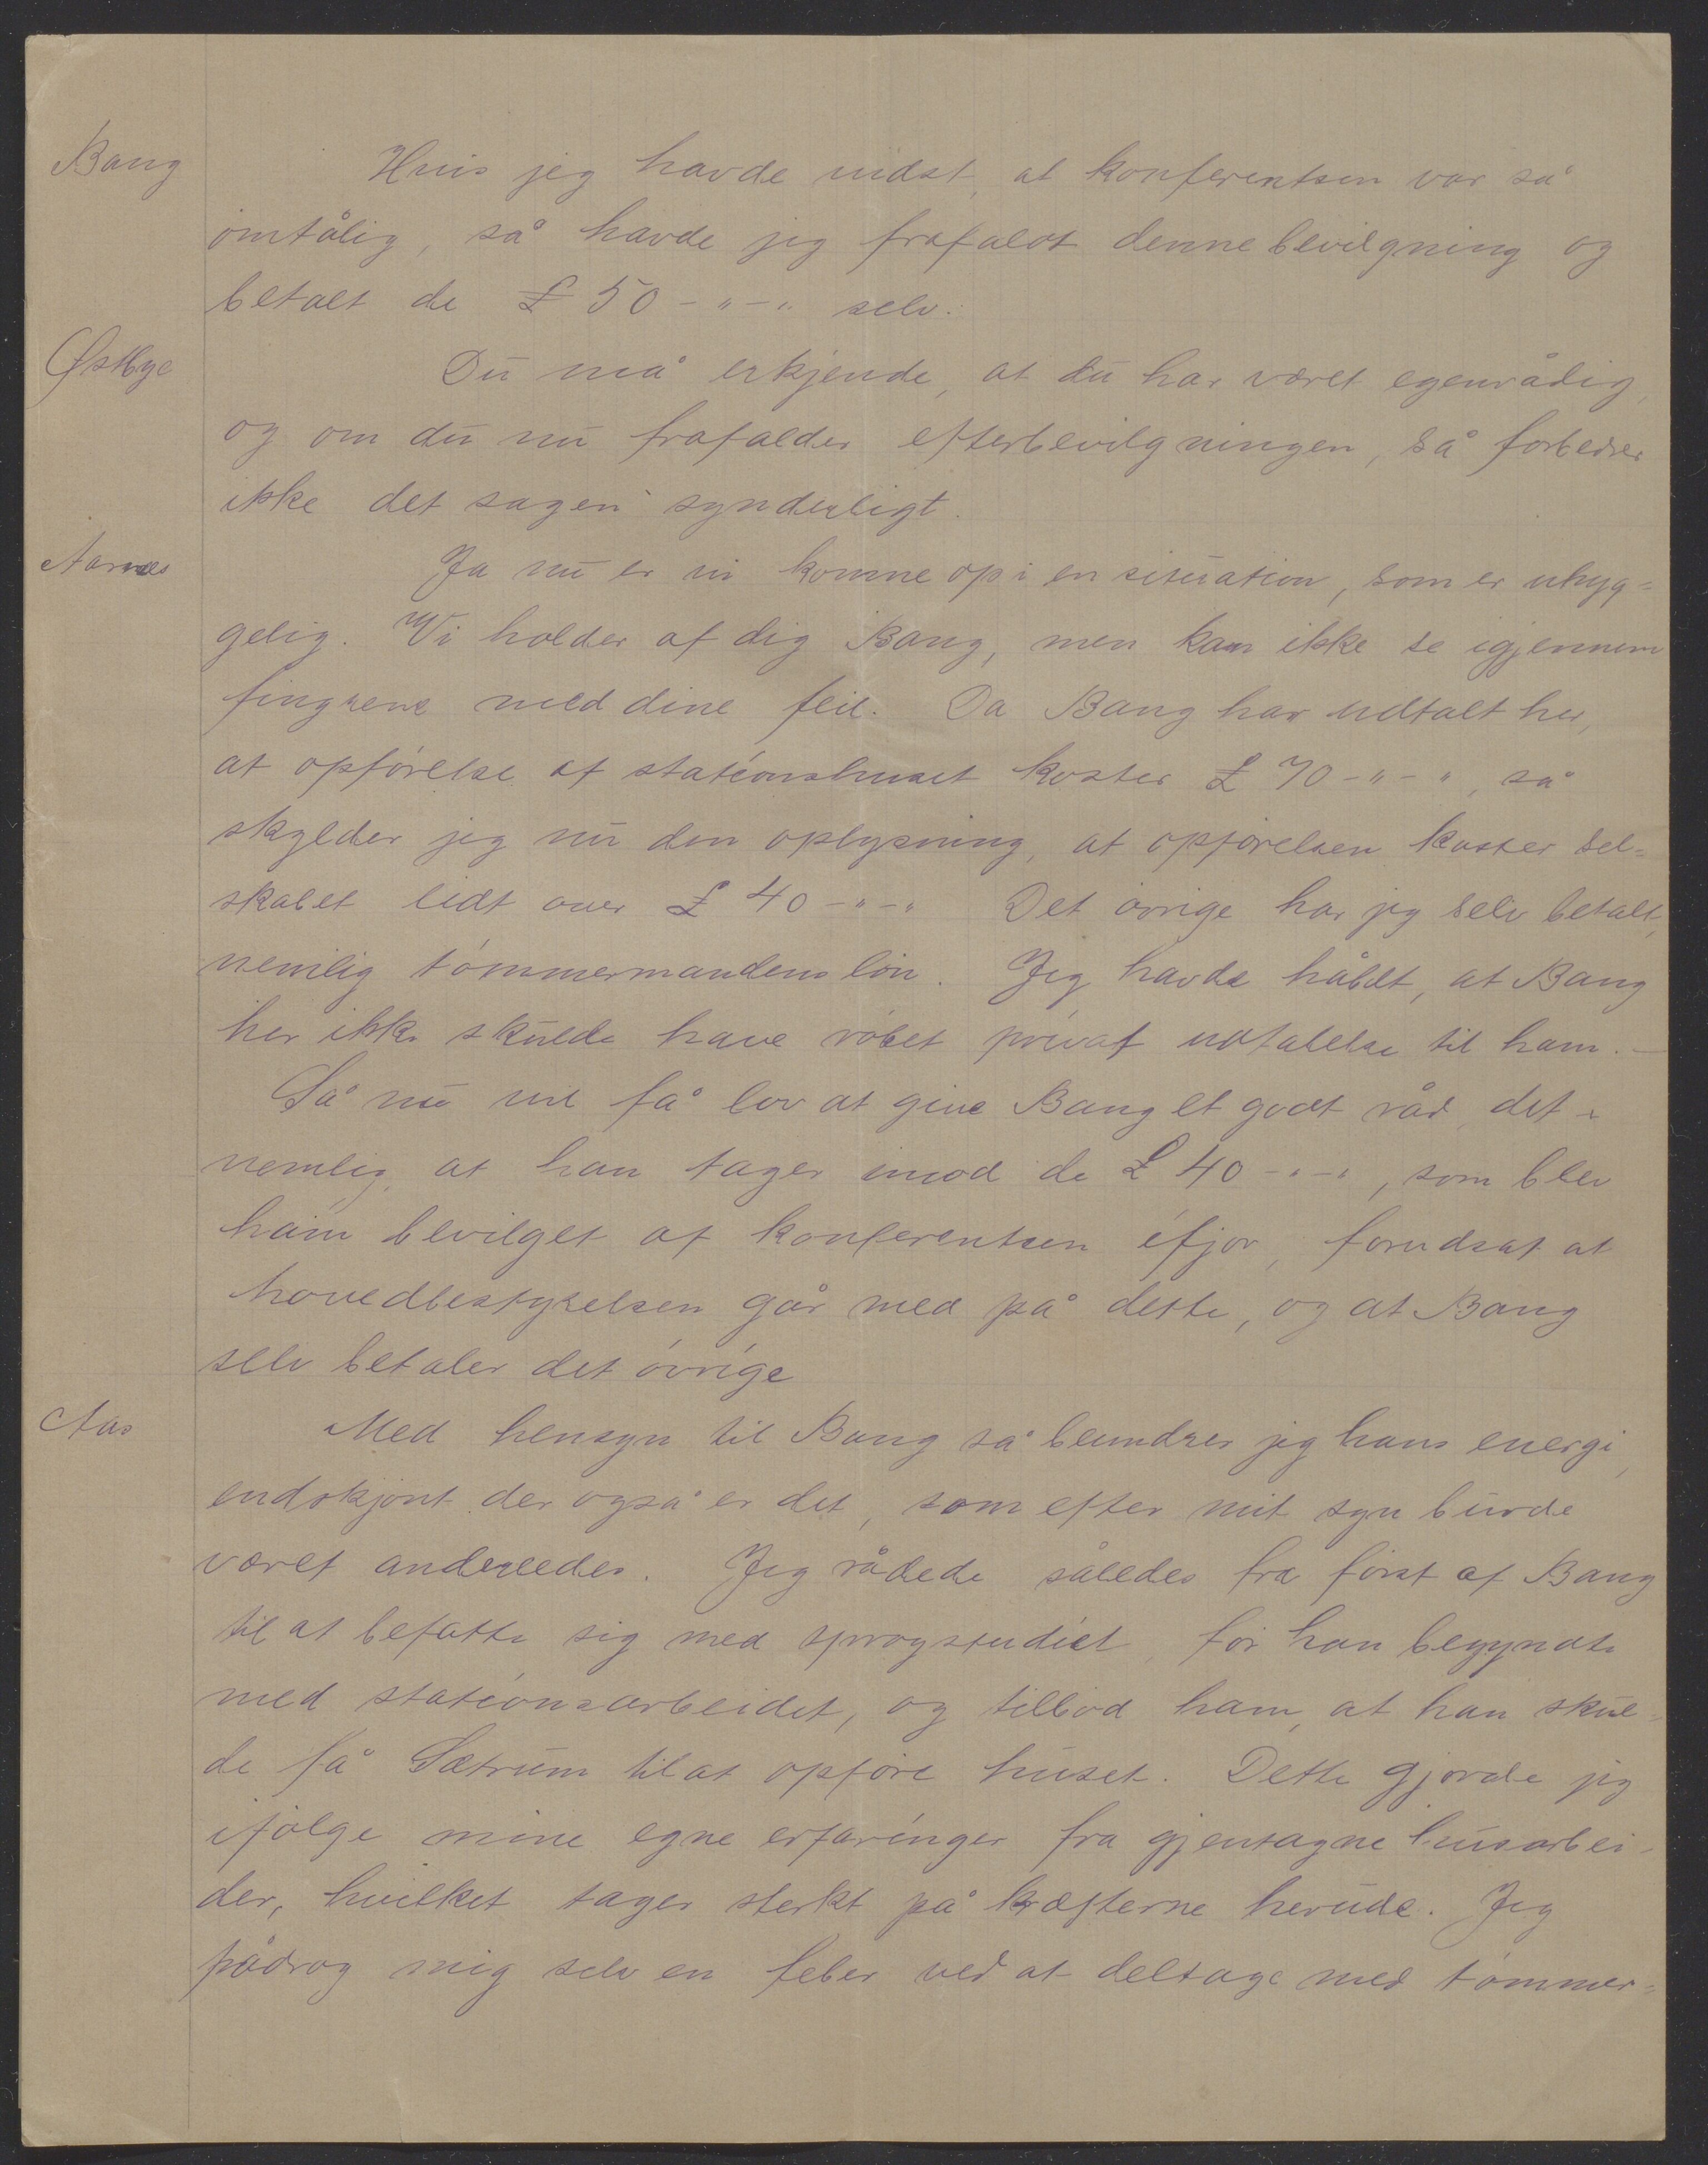 Bang Hvis jeg havde vidst, at konferentsen var så
ömtålig, så havde jeg frafaldt denne bevilgning og
betalt de £ 50-"-" selv.
Østbye Du må erkjende, at du har været egenrådig,
og om du nu frafalder efterbevilgningen, så forbedrer
ikke det sagen synderligt.
Aarnes Ja nu er vi komne op i en situation, som er uhyg=
gelig. Vi holder af dig Bang, men kan ikke se igjennem
fingrene med dine feil. Da Bang har udtalt her,
at opförelse af stationshuset koster £ 70-"-", så
skylder jeg nu den oplysning, at opförelsen koster sel=
skabet lidt over £ 40-"-" Det övrige har jeg selv betalt,
nemlig tömmermandens lön. Jeg havde håbet, at Bang
her ikke skulde have röbet privat udtalelse til ham. –
Så nu vil få lov at give Bang et godt råd, det
nemlig, at han tager imod de £ 40-"-", som blev
ham bevilget af konferentsen ifjor, forudsat at
hovedbestyrelsen går med på dette, og at Bang
selv betaler det övrige
Aas Med hensyn til Bang så beundrer jeg hans energi,
endskjönt der også er det, som efter mit syn burde
været anderledes. Jeg rådede således fra först af Bang
til at befatte sig med sprogstudiet, för han begyndte
med stationsarbeidet, og tilbød ham, at han skul-
de få Sætrum til at opföre huset. Dette gjorde jeg
ifölge mine egne erfaringer fra gjentagne husarbei-
der, hvilket tager sterkt på kræfterne herude. Jeg
pådrog mig selv en feber ved at deltage med tömmer=